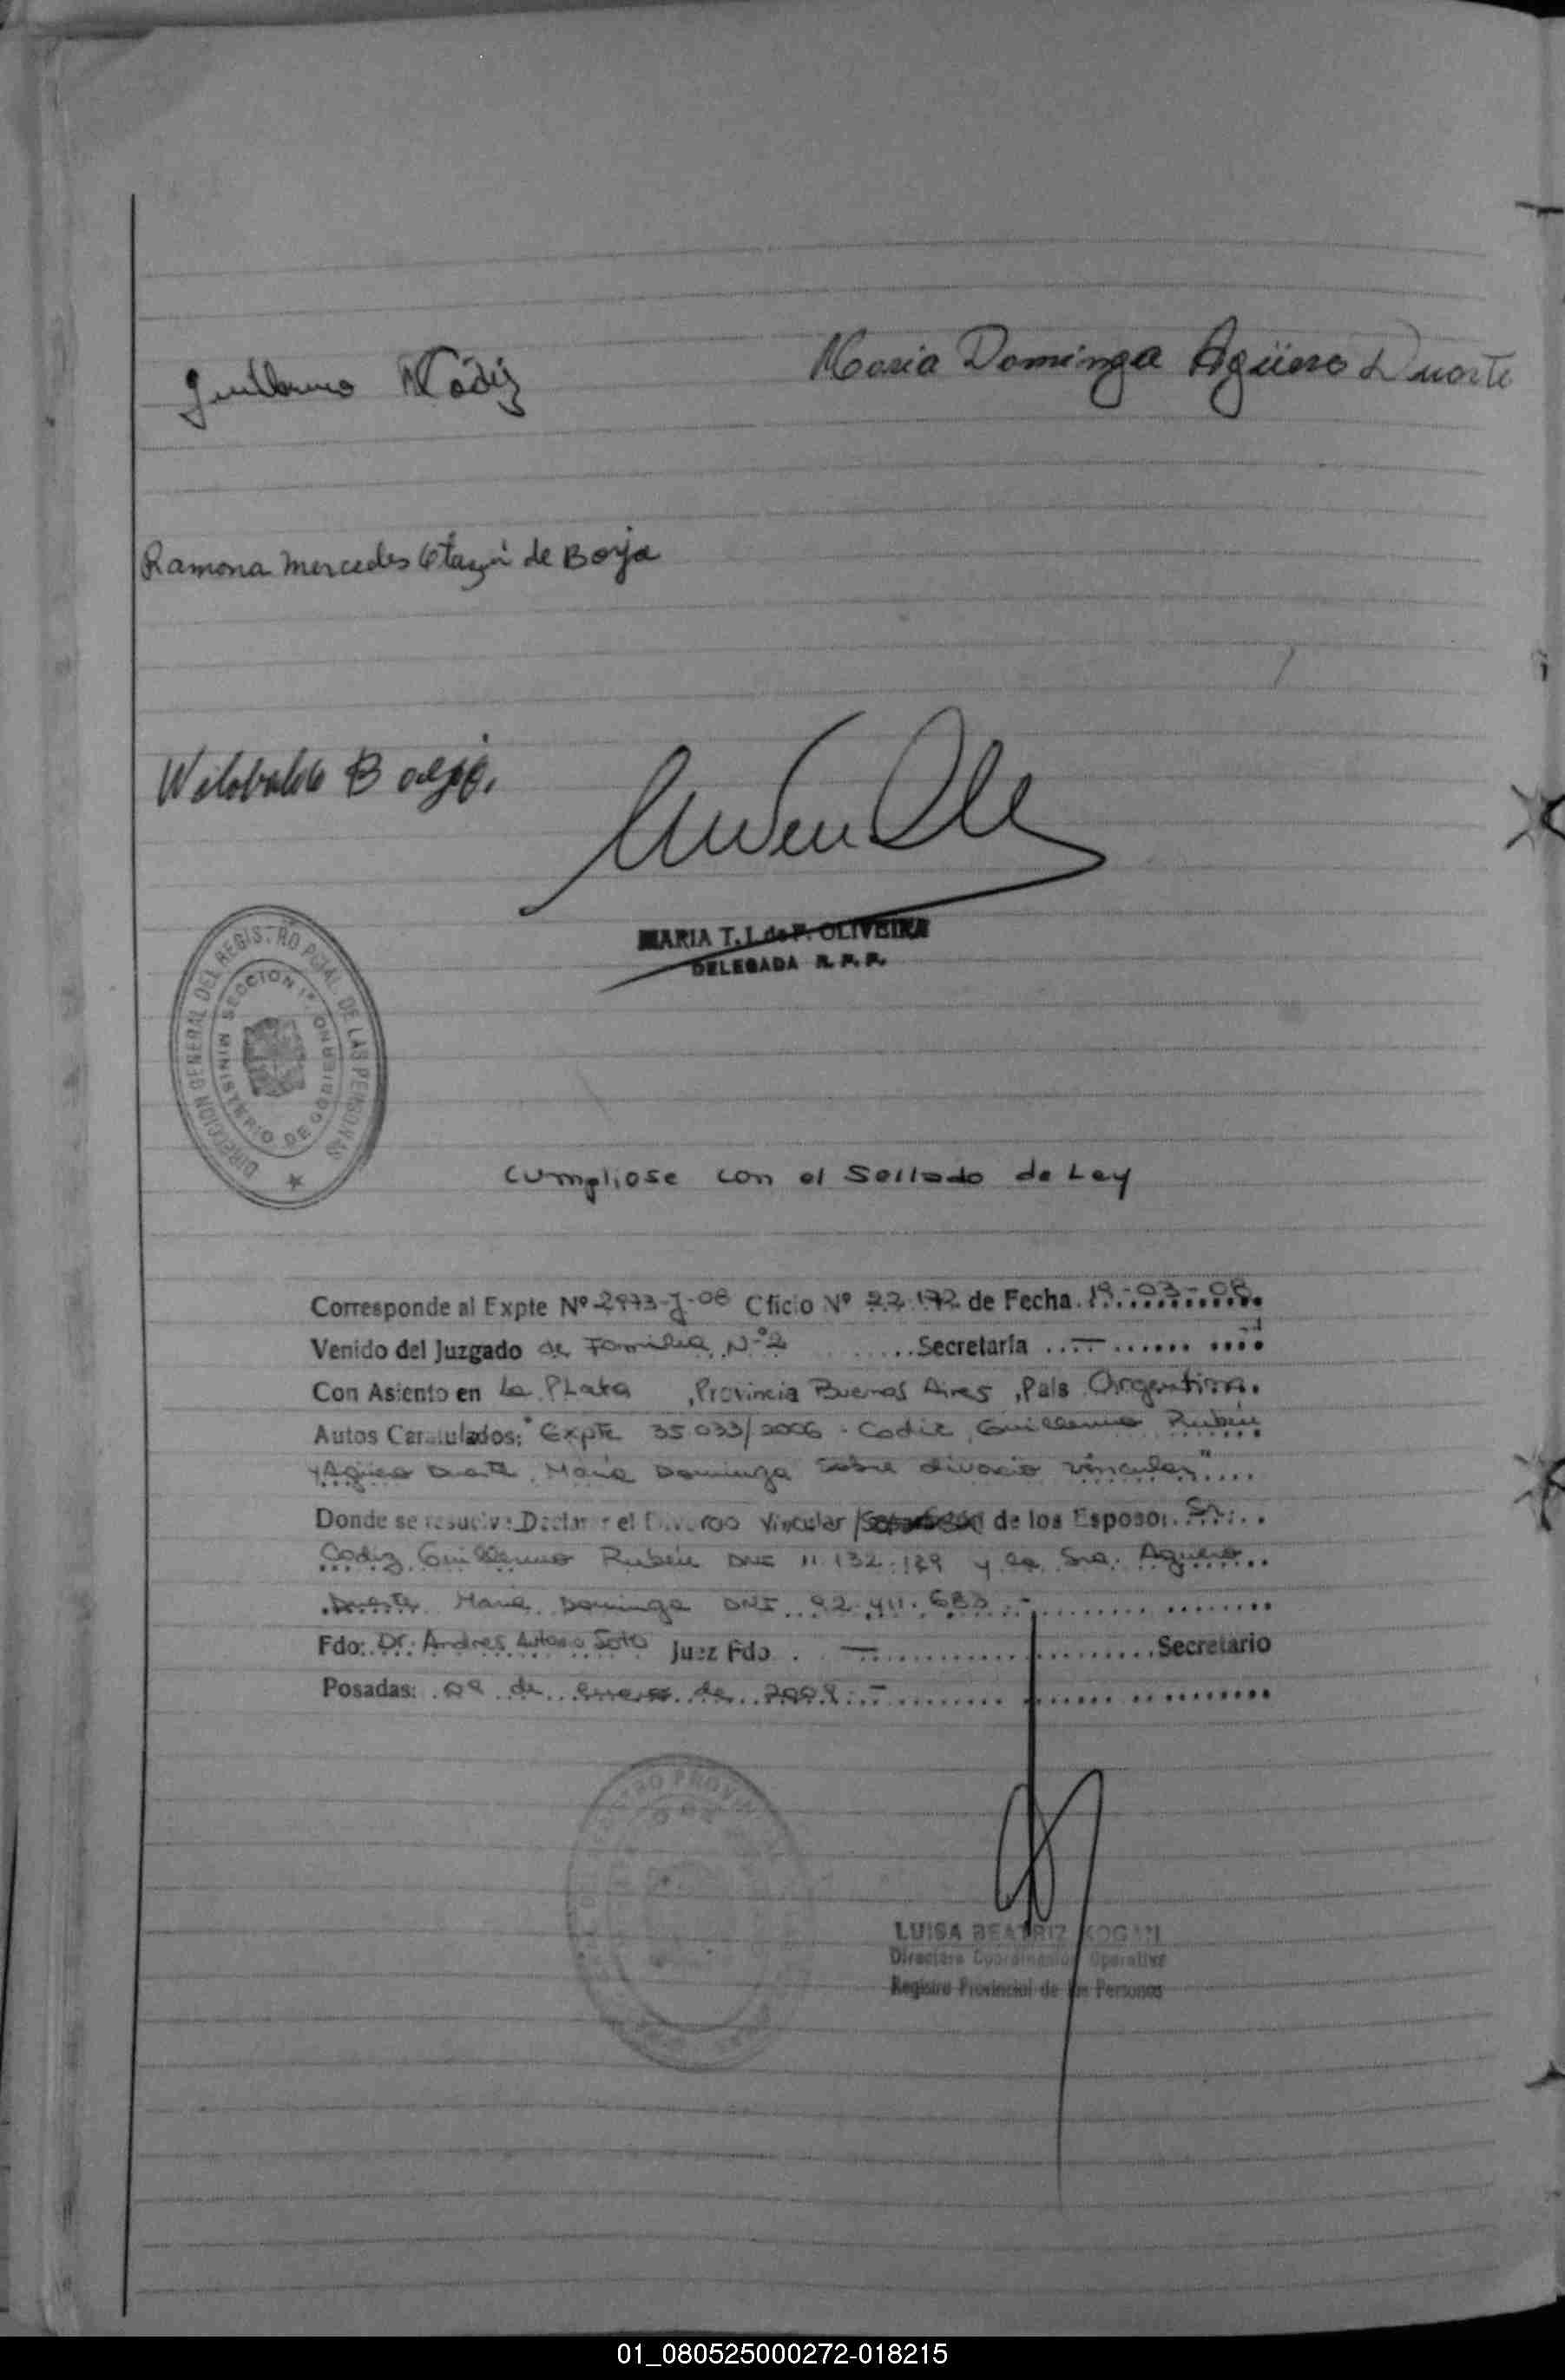 Guillermo Cádiz
Maria Dominga Agüero Duarte
Ramona Mercedes Otazú de Borja
Wilobaldo Borja.
MARIA T. I. de P. OLIVEIRA
DELEGADA R. P. P.
DIRECCION GENERAL DEL REGISTRO PCIAL. DE LAS PERSONAS
SECCION 1ª
MINISTERIO DE GOBIERNO
Cumpliose con el Sellado de Ley
Corresponde al Expte Nº 2973-J-08 Oficio Nº 22.172 de Fecha 19-03-08
Venido del Juzgado de Familia Nº 2 Secretaria —
Con Asiento en La Plata, Provincia Buenos Aires, País Argentina.
Autos Caratulados: "Expte 35.033/2006 - Cadiz, Guillermo Rubén
y Agüero Duarte, María Dominga sobre divorcio vincular"
Donde se resuelve Declarar el Divorcio Vincular / de los Esposos Sr.
Cadiz Guillermo Rubén DNI 11.132.189 y la Sra. Aguero
Duarte María Dominga DNI 92.411.683 -
Fdo: Dr. Andres Antonio Soto Juez Fdo. — Secretario
Posadas: 09 de enero de 2009.-
LUISA BEATRIZ KOGAN
Directora Coordinación Operativa
Registro Provincial de las Personas
01_080525000272-018215